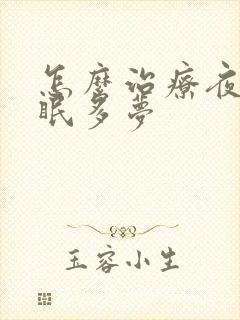 怎麼治療夜
眠多夢
玉容小生